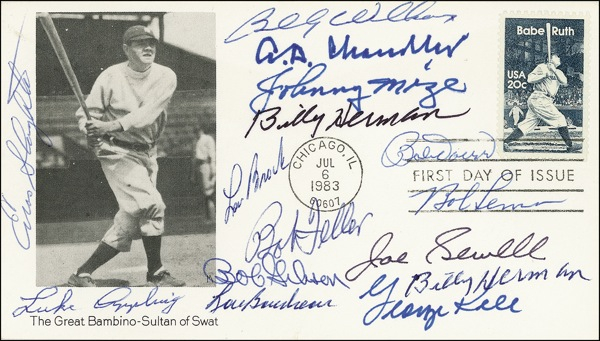 Billy Williams
A.B. Chandler
Johnny Mize
Billy Herman
Babe Ruth
USA
20c
Enos Slaughter
Lou Brock
CHICAGO, IL
JUL
6
1983
60607
Bob Doerr
FIRST DAY OF ISSUE
Bob Lemon
Bob Feller
Bob Gibson
Joe Sewell
Billy Herman
George Kell
Luke Appling
Lou Boudreau
The Great Bambino-Sultan of Swat